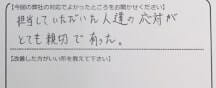 【今回の弊社の対応でよかったところをお聞かせください】
担当していただいた人達の応対が
とても親切で有った。
【改善した方がいい所を教えて下さい】